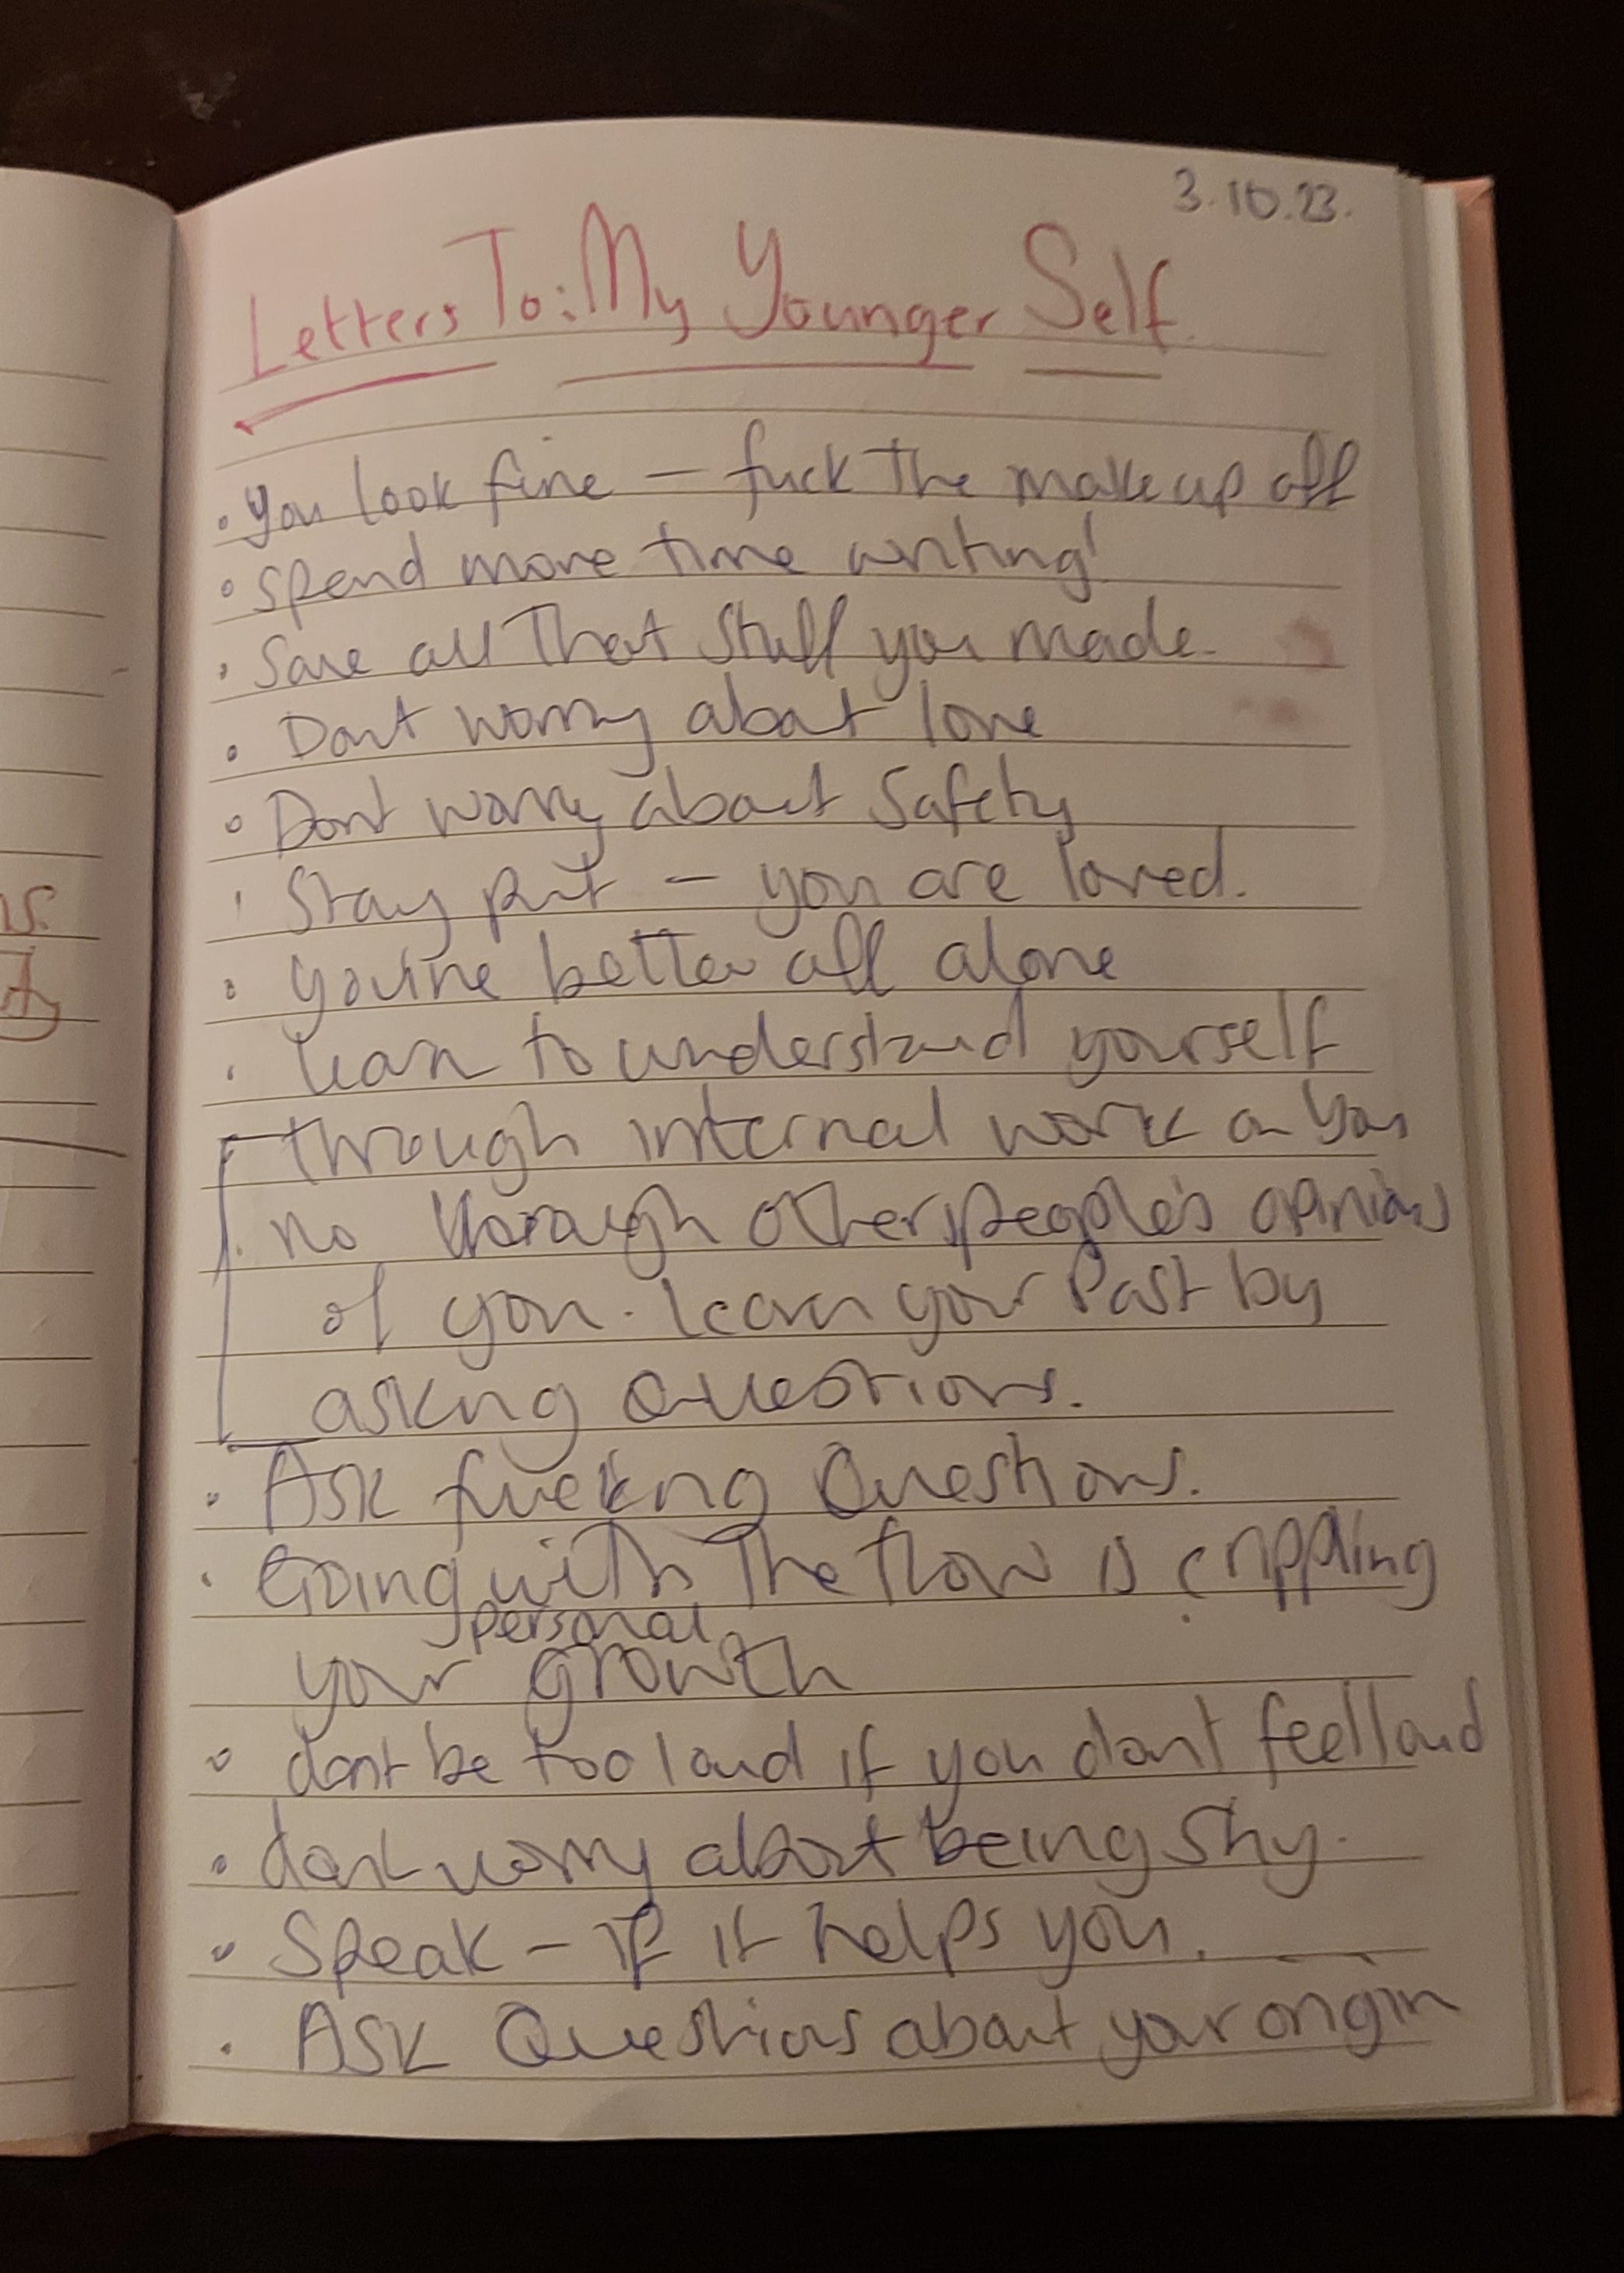 3.10.23.
Letters To: My Younger Self.
• you look fine – fuck the makeup off
• spend more time writing!
• Save all That Stuff you made.
• Dont worry about love
• Dont worry about Safety
• Stay put – you are loved.
• you're better off alone
• learn to understand yourself
through internal work on you
no through other people's opinions
of you. learn your Past by
asking Questions.
• Ask fucking Questions.
• Going with The flow is crippling
personal
your growth
• dont be too loud if you dont feel loud
• dont worry about being Shy.
• Speak – if it helps you.
• Ask Questions about your origin